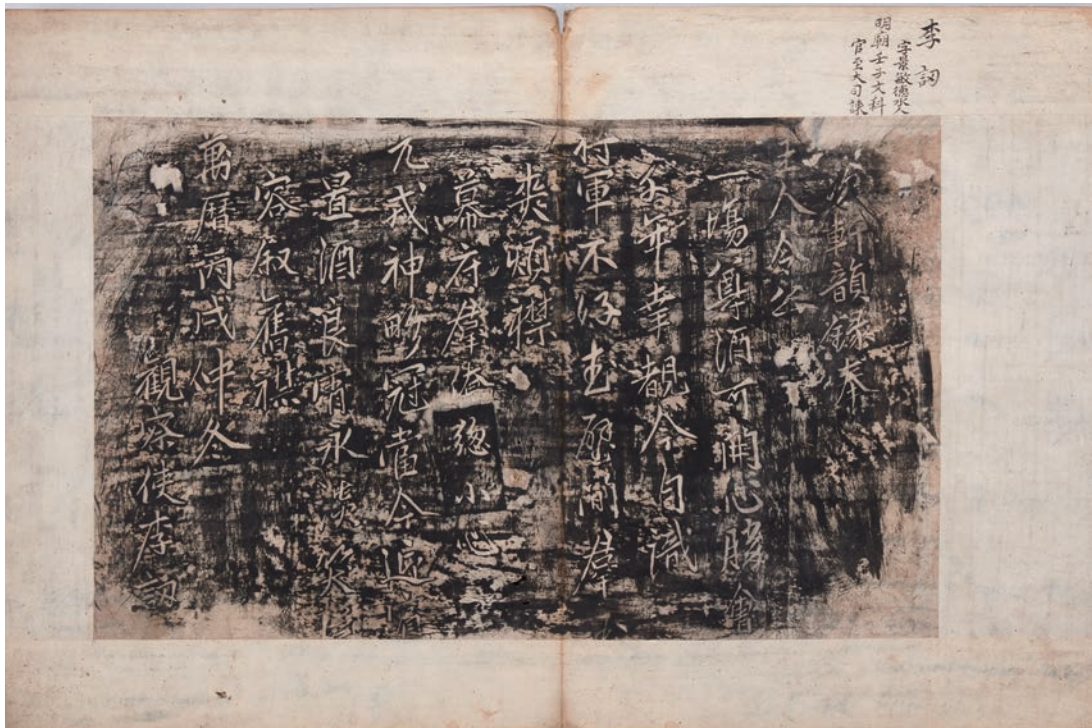 李訒
字景敏德水人
明朝壬子文科
官至大司諫
次軒韻錄奉
主人令公
一場尊酒可開心勝會
年幸覩今自識
將軍不好武
爽煩襟
幕府群僚總小心
元戎神眇冠當今
酒良宵永談笑
容叙舊襟
萬曆丙戌仲冬
觀察使李訒